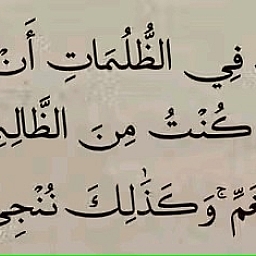 فِي الظُّلُمَاتِ أَنْ
كُنْتُ مِنَ الظَّالِمِ
غَمِّ ۚ وَكَذَٰلِكَ نُنْجِي